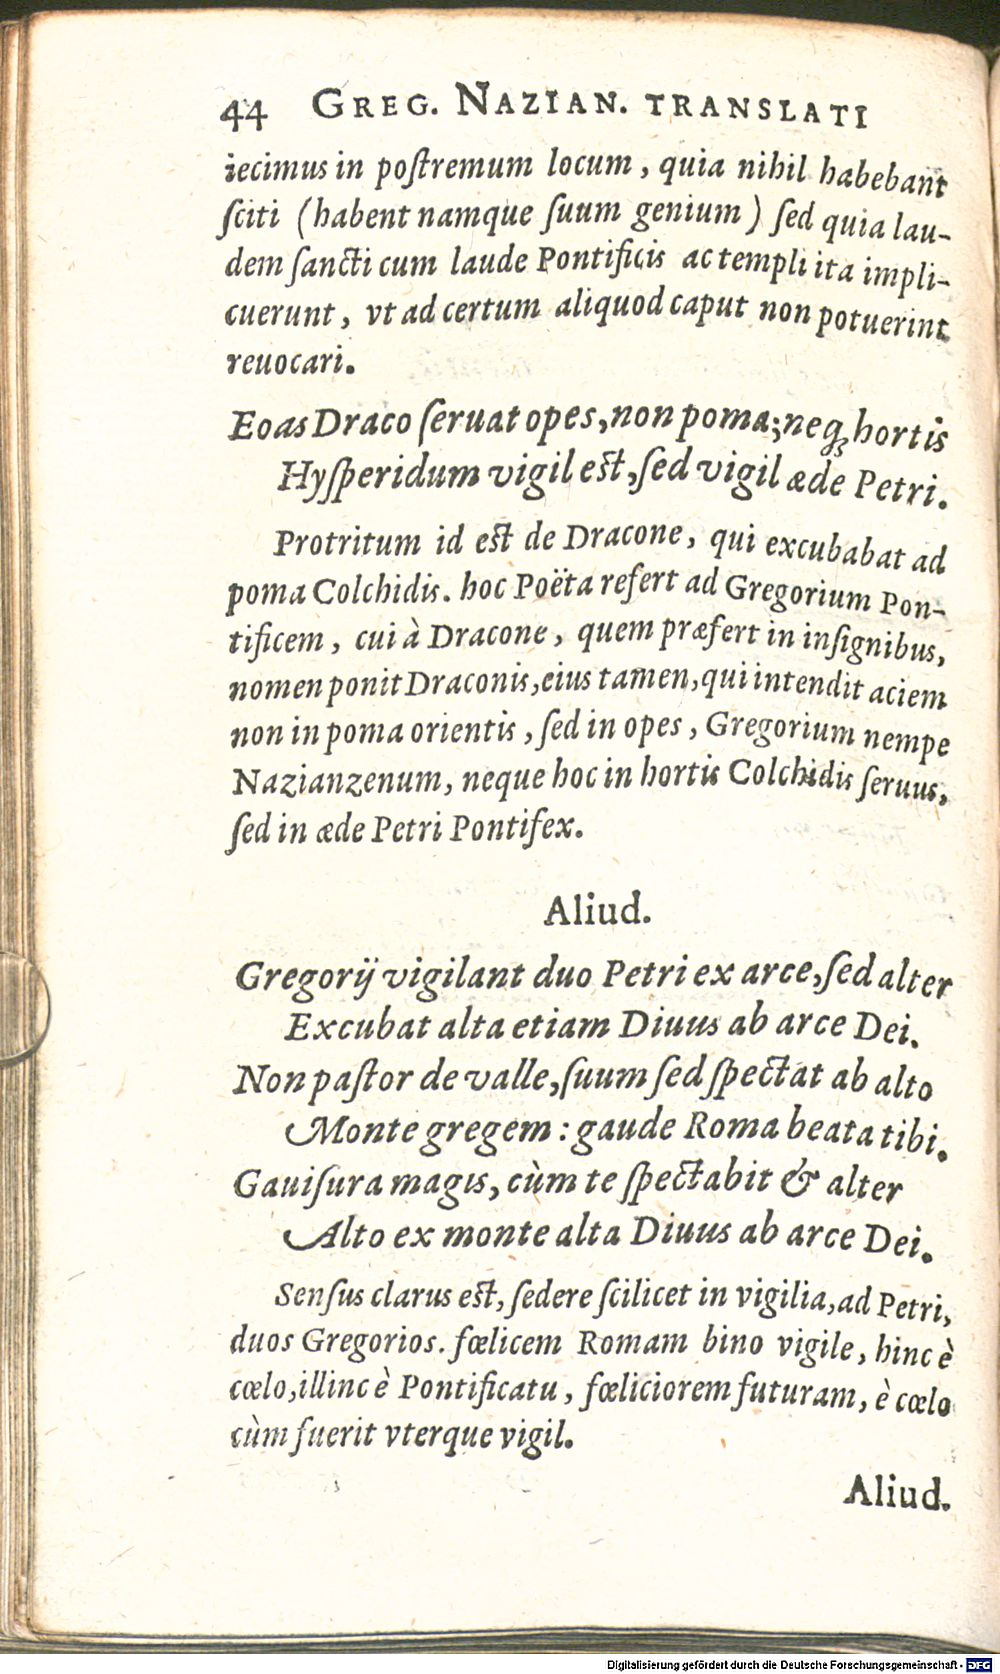 44 GREG. NAZIAN. TRANSLATI
iecimus in poſtremum locum, quia nihil habebant
ſciti (habent namque ſuum genium) ſed quia lau-
dem ſancti cum laude Pontificis ac templi ita impli-
cuerunt, vt ad certum aliquod caput non potuerint
reuocari.
Eoas Draco ſeruat opes, non poma; neq; hortis
Hyſperidum vigil eſt, ſed vigil æde Petri.
Protritum id eſt de Dracone, qui excubabat ad
poma Colchidis. hoc Poëta refert ad Gregorium Pon-
tificem, cui à Dracone, quem præfert in inſignibus,
nomen ponit Draconis, eius tamen, qui intendit aciem
non in poma orientis, ſed in opes, Gregorium nempe
Nazianzenum, neque hoc in hortis Colchidis ſeruus,
ſed in æde Petri Pontifex.
Aliud.
Gregorij vigilant duo Petri ex arce, ſed alter
Excubat alta etiam Diuus ab arce Dei.
Non paſtor de valle, ſuum ſed ſpectat ab alto
Monte gregem: gaude Roma beata tibi.
Gauiſura magis, cùm te ſpectabit & alter
Alto ex monte alta Diuus ab arce Dei.
Senſus clarus eſt, ſedere ſcilicet in vigilia, ad Petri,
duos Gregorios. fœlicem Romam bino vigile, hinc è
cœlo, illinc è Pontificatu, fœliciorem futuram, è cœlo
cùm fuerit vterque vigil.
Aliud.
Digitalisierung gefördert durch die Deutsche Forschungsgemeinschaft - DFG